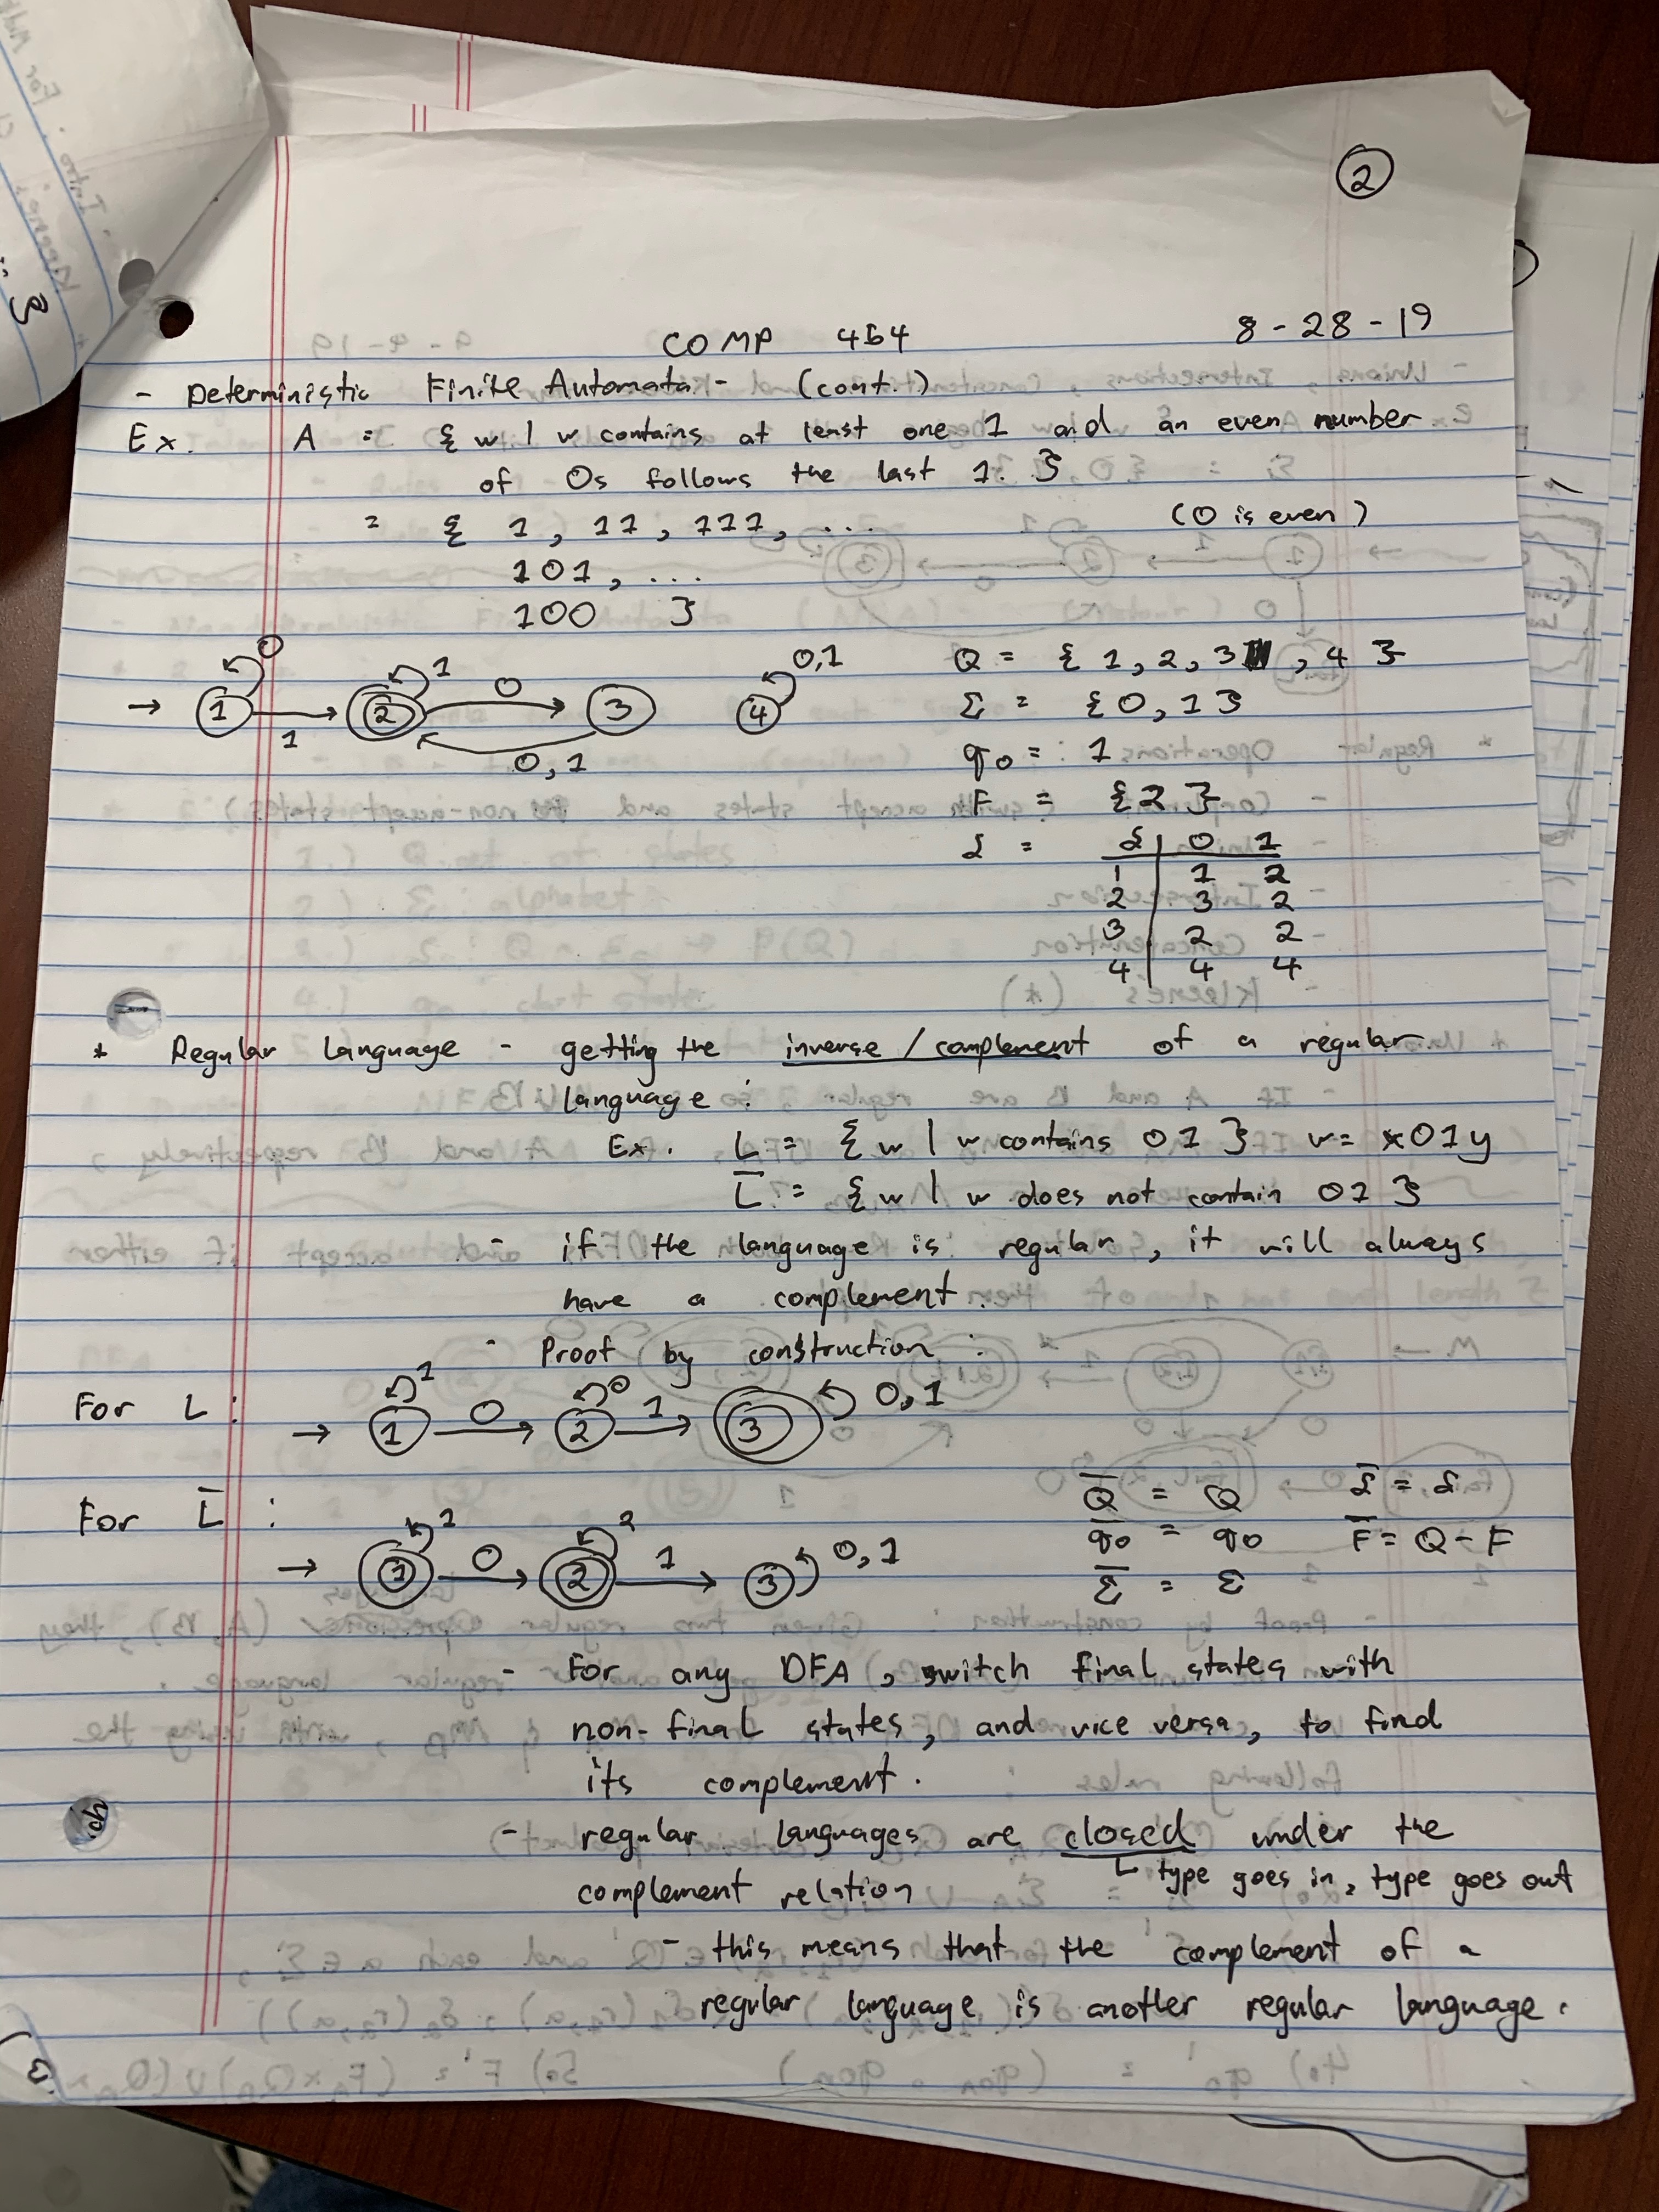 2
COMP 454
8-28-19
- Deterministic Finite Automata - (cont.)
Ex. A = { w | w contains at least one 1 and an even number
of 0s follows the last 1. }
= { 1, 11, 111, ... (0 is even)
101, ...
100 }
0
→ 1 1 2 1 0 3 0,1 4 0,1
Q = { 1, 2, 3, 4 }
Σ = { 0, 1 }
q0 = 1
F = { 2 }
δ = δ | 0 1
1 | 1 2
2 | 3 2
3 | 2 2
4 | 4 4
* Regular Language - getting the inverse / complement of a regular
language :
Ex. L = { w | w contains 01 } w = x01y
L̅ = { w | w does not contain 01 }
- if the language is regular, it will always
have a complement.
- Proof by construction :
For L : → 1 1 0 2 0 1 3 0,1
For L̅ : → 1 1 0 2 1 1 3 0,1
Q̅ = Q δ̅ = δ
q̅0 = q0 F̅ = Q - F
Σ̅ = Σ
- For any DFA, switch final states with
non-final states, and vice versa, to find
its complement.
- regular languages are closed under the
complement relation
↳ type goes in, type goes out
- this means that the complement of a
regular language is another regular language.